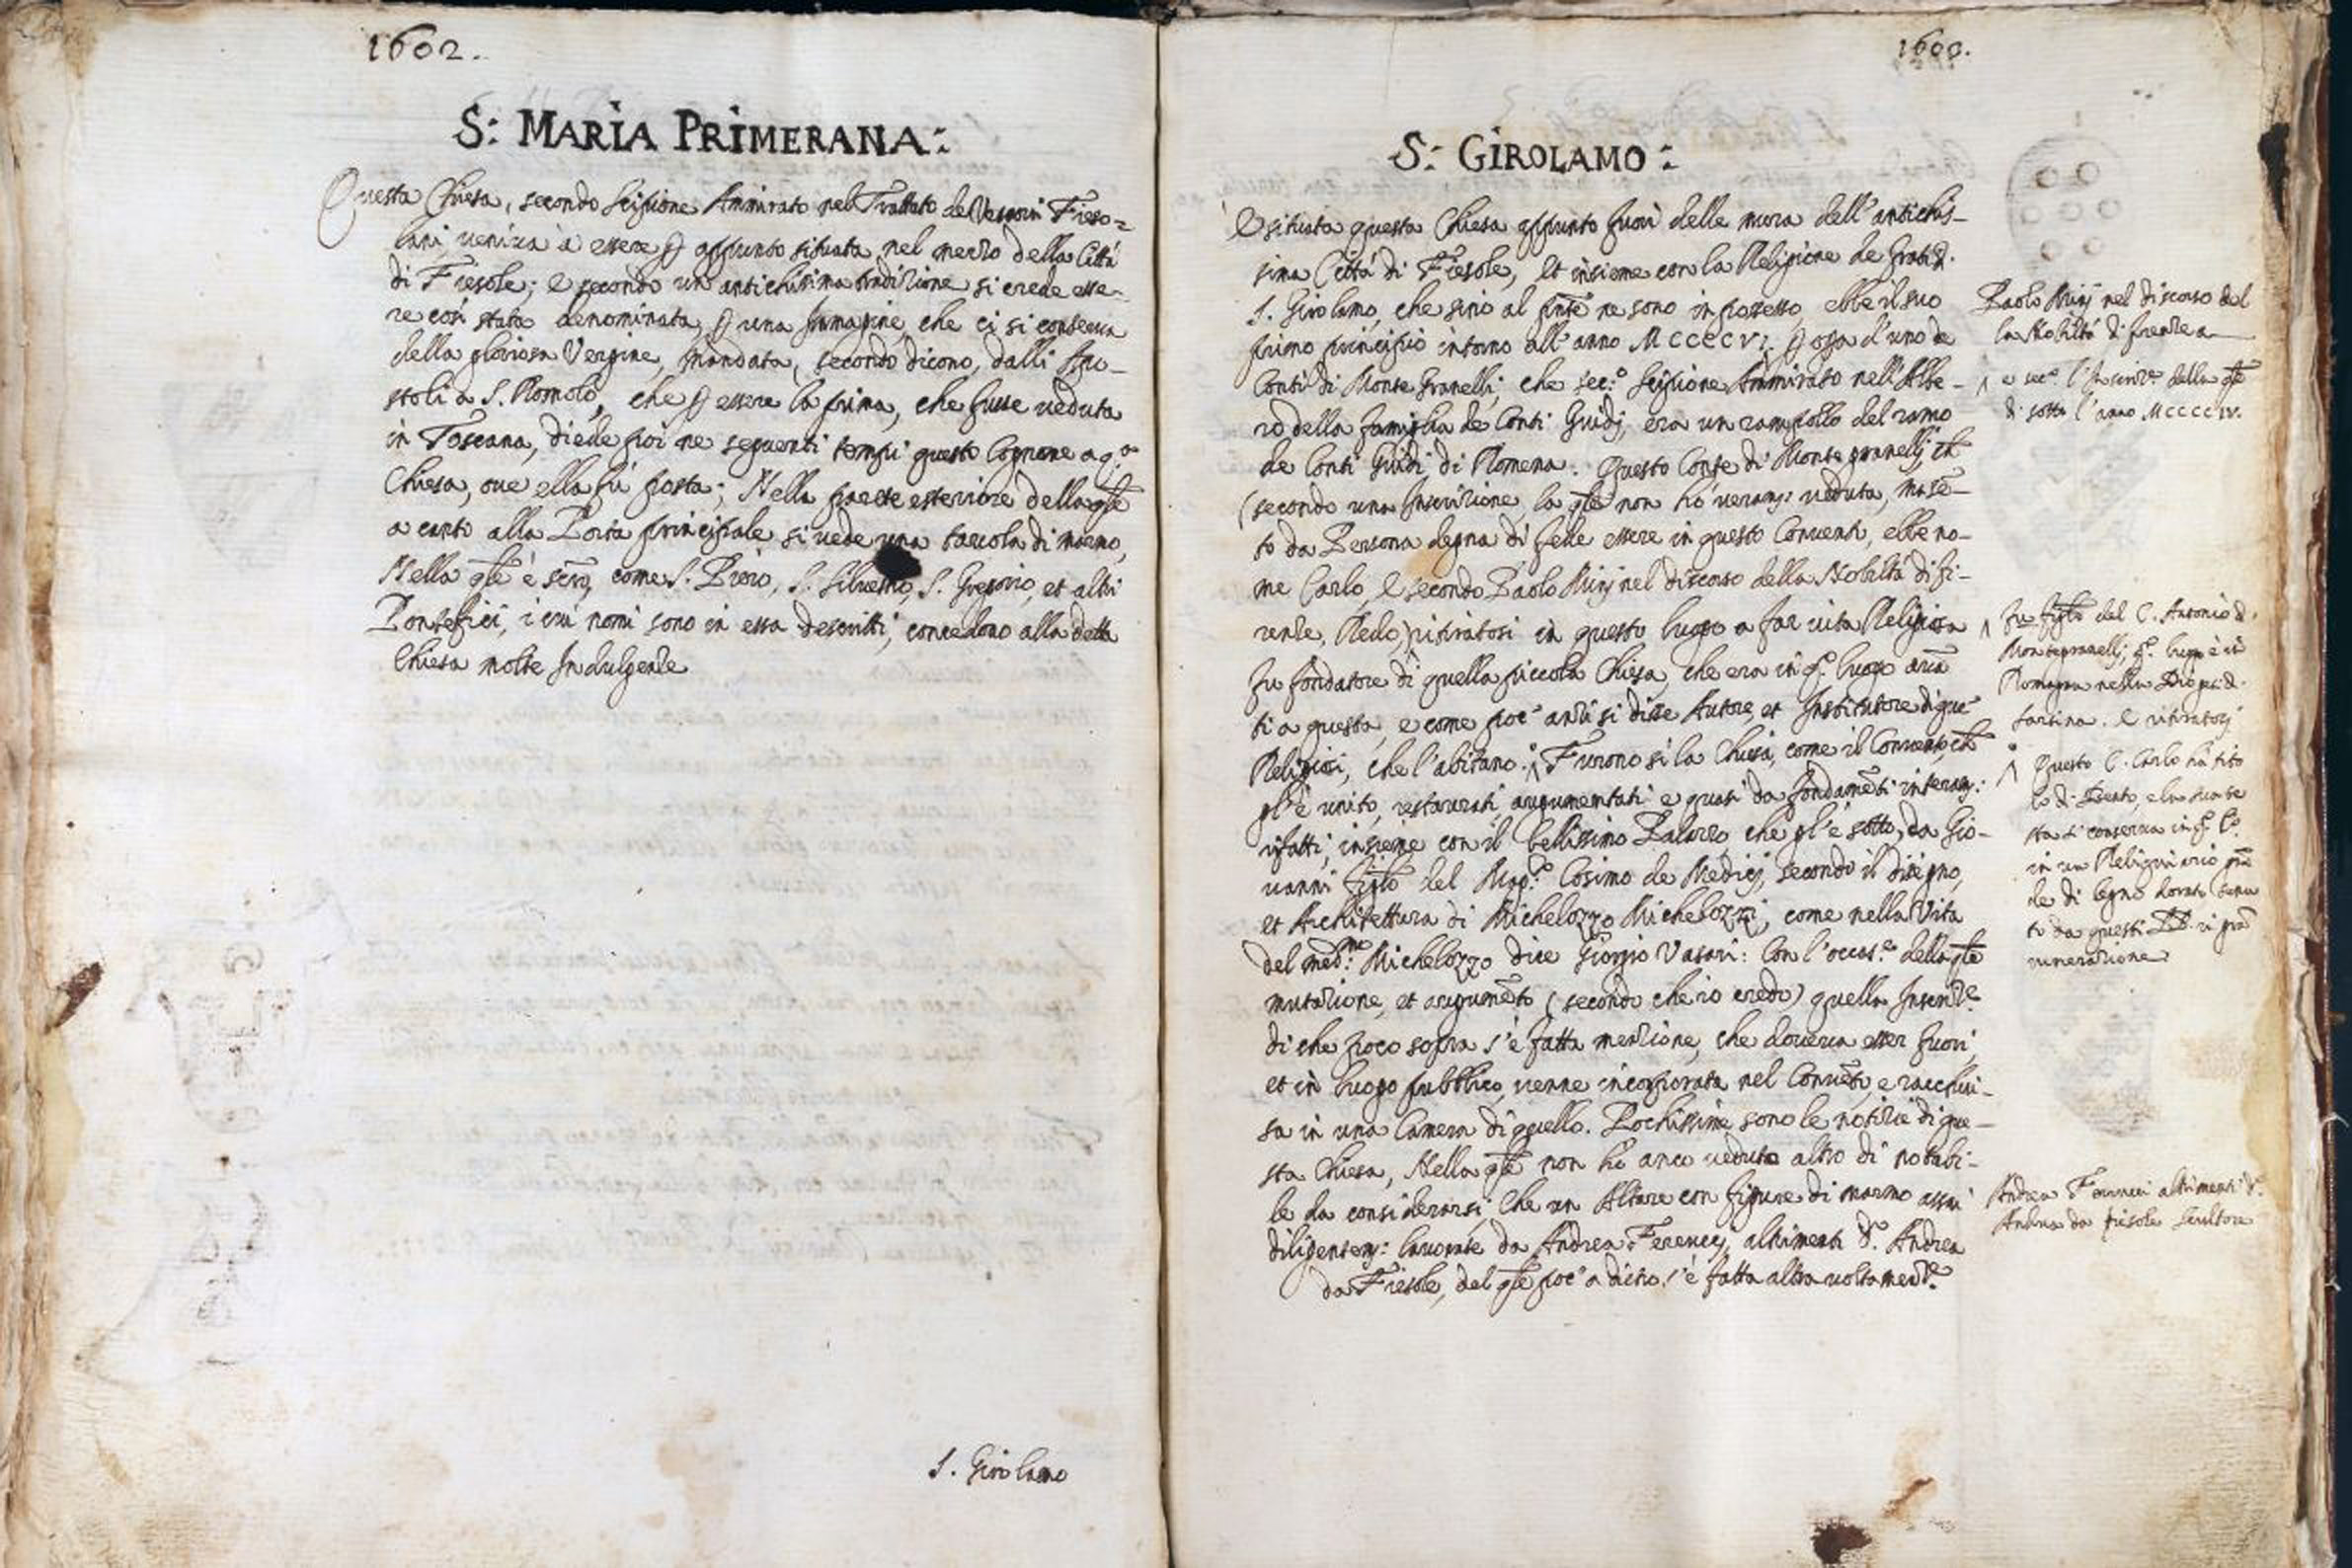 1602.
S: MARIA PRIMERANA:
Questa Chiesa, secondo Scipione Ammirato nel Trattato de Vescovi Fieso=
lani, veniva à essere p appunto situata nel mezzo della Città
di Fiesole; e secondo un antichissima tradizione si crede esse-
re così stata denominata, p una Immagine, che ci si conserva
della gloriosa Vergine, mandata, secondo dicono, dalli Apo-
stoli a S. Romolo, che p essere la prima, che fusse veduta
in Toscana, diede poi ne seguenti tempi questo Cognome a q.a
Chiesa, ove ella fù posta; Nella parete esteriore della qle
a canto alla Porta principale si vede una tavola di marmo,
Nella qle è scrō, come S. Piero, S. Silvestro, S. Gregorio, et altri
Pontefici, i cui nomi sono in essa descritti, concedono alla detta
Chiesa molte Indulgenze
S. Girolamo
1603.
S: GIROLAMO:
È situata questa Chiesa appunto fuori delle mura dell'antichis-
sima Città di Fiesole, et insieme con la Religione de frati d.
S. Girolamo, che sino al pnte ne sono in possesso ebbe il suo
primo principio intorno all'anno MCCCCVI. p opa d'uno de
Conti di Monte Granelli, che sec.o Scipione Ammirato nell'Albe-
ro della famiglia de Conti Guidi, era un rampollo del ramo
de Conti Guidi di Romena. Questo Conte di Monte granelli, ch
(secondo una Inscrizione, la qle non ho veram: veduta, ma sē-
to da Persona degna di fede essere in questo Convento, ebbe no-
me Carlo, e secondo Paolo Mini nel discorso della Nobiltà di fi-
renze, Redo,) ritiratosi in questo luogo a far vita Religiosa
fu fondatore di quella piccola Chiesa, che era in q.o luogo avā
ti a questa, e come poc'anzi si disse Autore, et Institutore di que'
Religiosi, che l'abitano. Furono sì la Chiesa, come il Convento, ch
gl'è unito, restaurati, augumentati e quasi da fondamēti interam:
rifatti, insieme con il bellissimo Palazzo che gl'è sotto, da Gio-
vanni figlo del Mag.co Cosimo de Medici, secondo il disegno,
et Architettura di Michelozzo Michelozzi, come nella Vita
del med.mo Michelozzo dice Giorgio Vasari: Con l'occas.e della qle
mutazione, et augumēto (secondo che io credo) quella Inscriz.e
di che poco sopra s'è fatta menzione, che doveva esser fuori,
et in luogo pubblico, venne incorporata nel Convēto, e racchiu-
sa in una Camera di quello. Pochissime sono le notizie di que-
sta Chiesa, Nella qle non hò anco veduto altro di notabi-
le da considerarsi che un Altare con figure di marmo assai
diligentem: lavorate da Andrea Ferrucci, altrimenti d.o Andrea
da Fiesole, del qle poc'a dieto s'è fatta altra volta menz.e
Paolo Mini nel discorso del
la Nobiltà di firenze a
e sec.o l'Inscriz.e della qle
di sotto l'anno MCCCCIV.
fu figlo del C. Antonio d.
Montegranelli, q.o luogo è in
Romagna nella Diogesi d.
Sarsina. e ritiratosi
Questo C. Carlo hà tito
lo di Beato, e la sua te
sta si conserva in q.o Co.
in un Reliquiario grā
de di legno dorato tenu
to da questi PP. in grā
venerazione
Andrea Ferrucci altrimenti d.o
Andrea da fiesole scultore